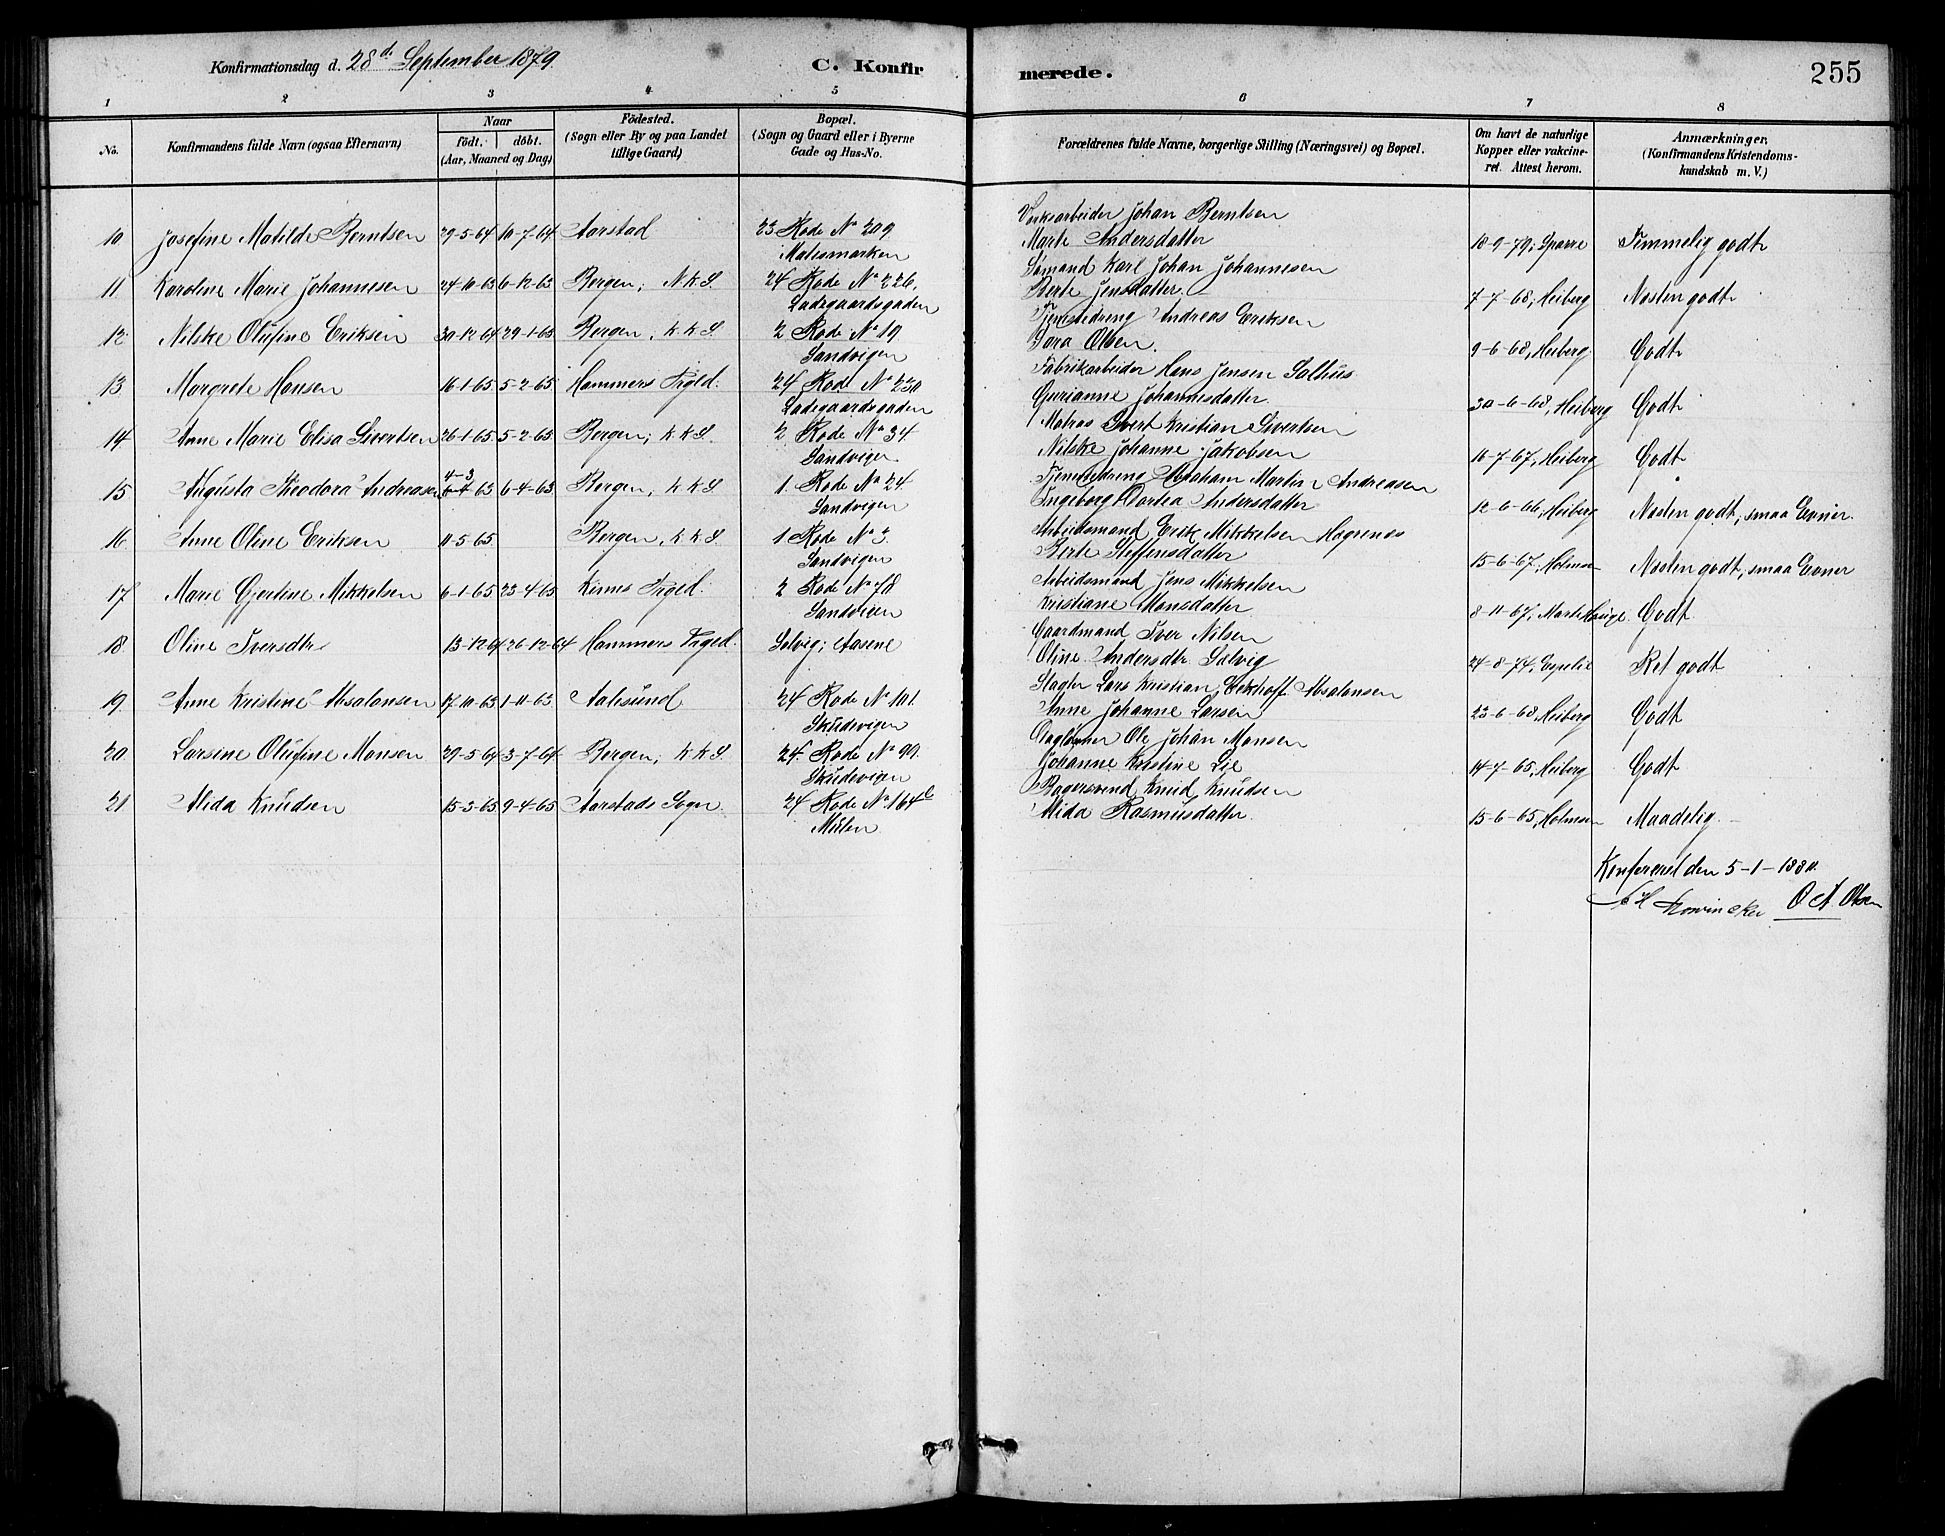 Konfirmationsdag d. 28d. September 1879.
C. Konfir
merede.
255
1 2 3 4 5 6 7 8
No.
Konfirmandens fulde Navn (ogsaa Efternavn)
Naar
födt. döbt.
(Aar, Maaned og Dag)
Födested.
(Sogn eller By og paa Landet
tillige Gaard)
Bopæl.
(Sogn og Gaard eller i Byerne
Gade og Hus-No.
Forældrenes fulde Navne, borgerlige Stilling (Næringsvei) og Bopæl.
Om havt de naturlige
Kopper eller vakcine-
ret. Attest herom.
Anmærkninger.
(Konfirmandens Kristendoms-
kundskab m. V.)
10 Josefine Matilde Berntsen 29-5-64 10-7-64 Aarstad 23 Rode No 209
Møllesmarken
Johan Berntsen
Marte Andersdatter 18-9-79; Sparre Temmelig godt
11 Karoline Marie Johannesen 24-10-63 6-12-63 Bergen; N.k.S. 24 Rode No 226,
Ladegaardsgaden
Sømand Karl Johan Johannesen
Berte Jensdatter. 7-7-68, Heiberg Næsten godt
12 Nilske Olufine Eriksen 30-12-64 29-1-65 Bergen, K.k.S. 2 Rode No 19
Sandvigen
Tjenestedreng Andreas Eriksen
Sara Olsen. 9-6-68, Heiberg Godt
13 Margrete Hansen 16-1-65 5-2-65 Hammers Prgld. 24 Rode No 230
Ladegaardsgaden
Fabrikarbeider Hans Jensen Salhus
Gurianne Johannesdatter 30-6-68, Heiberg Godt
14 Anne Marie Elisa Sivertsen 26-1-65 5-2-65 Bergen; K.k.S. 2 Rode No 34.
Sandvigen
Matros Sivert Kristian Sivertsen
Nilske Johanne Jakobsen 10-7-67, Heiberg Godt
15 Augusta Theodora Andreasen 4-3 6-4 63 6-4-63 Bergen, K.k.S. 1. Rode No 24.
Sandvigen
Tjenestedreng Abraham Martin Andreasen
Ingeborg Dortea Andersdatter 12-6-66, Heiberg Næsten godt, smaa Evner.
16 Anne Oline Eriksen 11-5-65. Bergen, K.k.S. 1 Rode No 3.
Sandvigen
Arbeidsmand Erik Mikkelsen Høgrenes
Berte Steffensdatter 15-6-67, Holmsen Næsten godt, smaa Evner
17 Marie Gjertine Mikkelsen 6-1-65 23-4-65 Kinns Prgld. 2 Rode No 78
Sandvigen
Arbeidsmand Jens Mikkelsen
Kristiane Monsdatter 8-11-67, Marte Hauge. Godt
18 Oline Iversdtr 13-12-64 26-12-64 Hammers Prgld. Selvig; Aasene
Gaardmand Iver Nilsen
Oline Andersdtr. Selvig 24-8-74, Ret godt
19 Anne Kristine Absalonsen 17-10-63 1-11-63 Aalesund 24 Rode No 101.
Skudevigen
Slagter Lars Kristian Eckhoff Absalonsen
Anne Johanne Larsen 23-6-68, Heiberg Godt
20 Larsine Olufine Monsen 29-5-64 3-7-64 Bergen; K.k.S. 24. Rode No 99.
Skudevigen
Dagløner Ole Johan Monsen
Johanne Kristine Lie 14-7-65, Heiberg Godt
21 Alida Knudsen 15-3-65 9-4-65 Aarstads Sogn 24 Rode No 164
Mulen
Bagersvend Knud Knudsen
Alida Rasmusdatter. 15-6-65, Holmsen Maadelig.
Konfereret den 5-1-1880.
O A Olsen